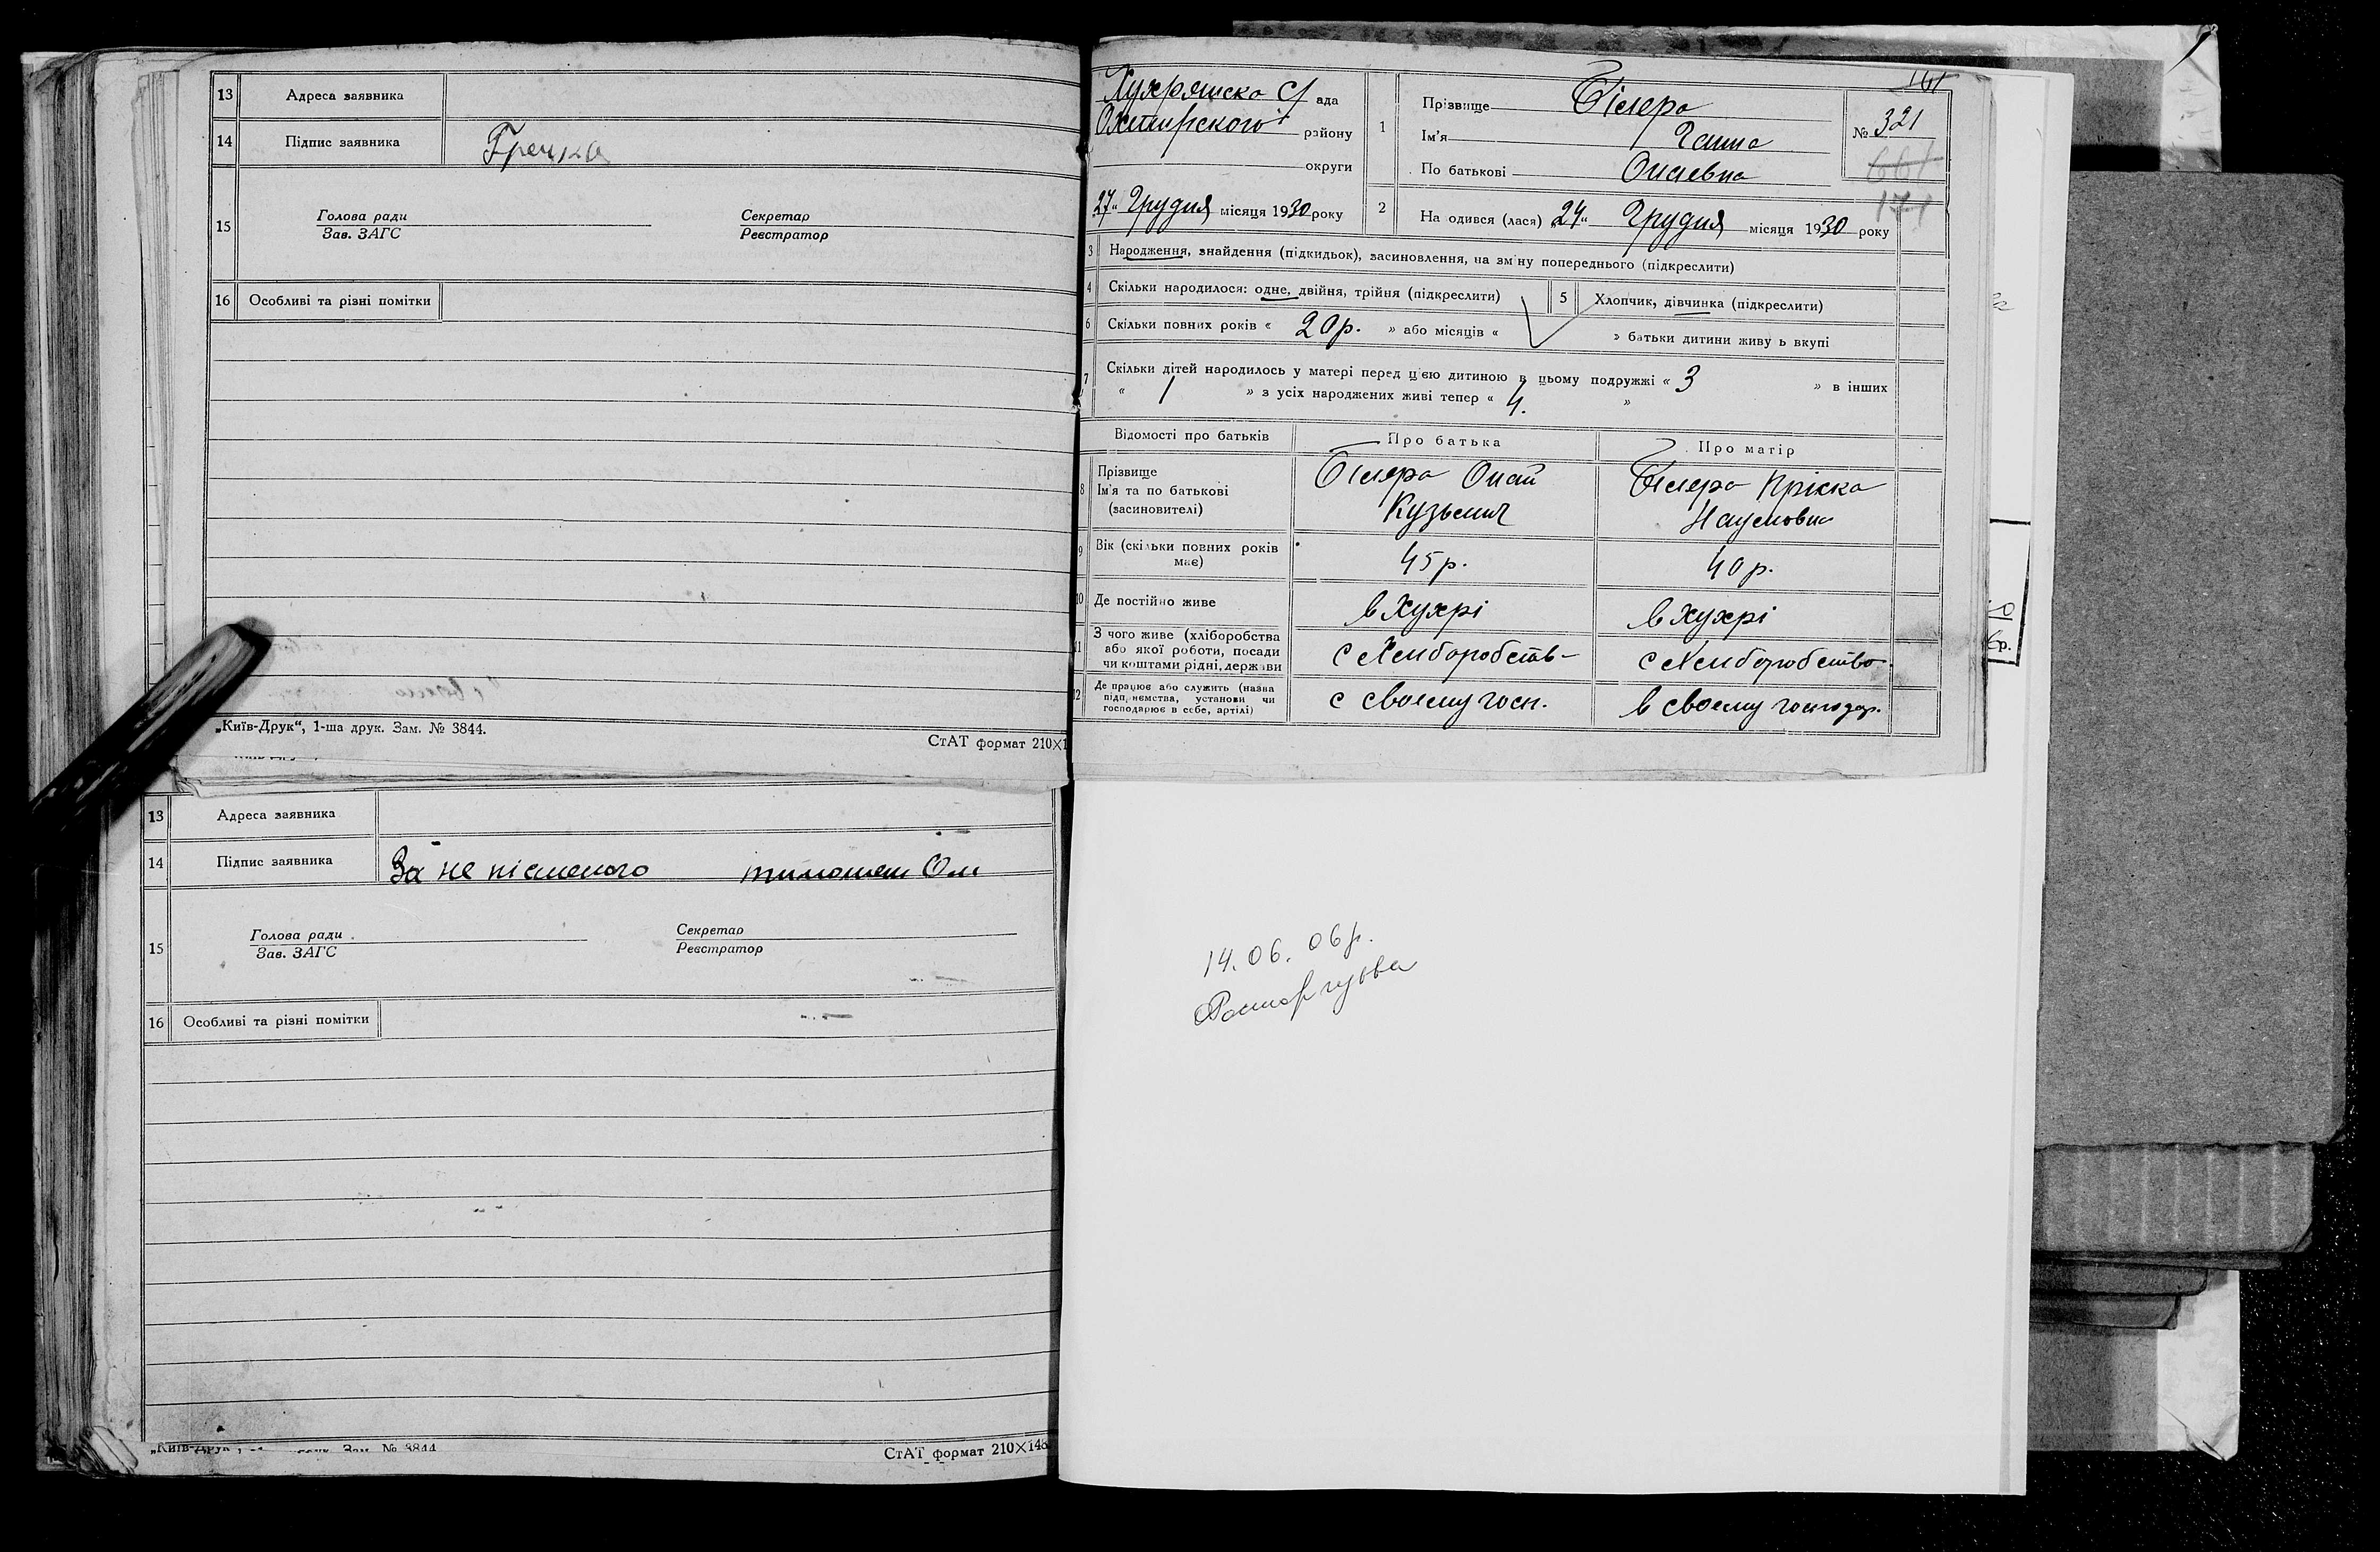 13 Адреса заявника
14 Підпис заявника Гречка
15 Голова ради Секретар
Зав. ЗАГС Реєстратор
16 Особливі та різні помітки
„Київ-Друк“, 1-ша друк. Зам. № 3844.
СтАТ формат 210×1
13 Адреса заявника
14 Підпис заявника За не пісменого
15 Голова ради Секретар
Зав. ЗАГС Реєстратор
16 Особливі та різні помітки
Зам. № 3844
СтАТ формат 210×148
161
С/ ада
району
округи
27 „ Грудня місяця 1930 року
1 Прізвище
Ім'я Ганна
По батькові
№ 321
661
171
2 На одився (лася) 24 „ Грудня місяця 1930 року
3 Народження, знайдення (підкидьок), засиновлення, на зміну попереднього (підкреслити)
4 Скільки народилося: одне, двійня, трійня (підкреслити) 5 Хлопчик, дівчинка (підкреслити)
6 Скільки повних років « 20 р. » або місяців « » батьки дитини живу ь вкупі
7 Скільки дітей народилось у матері перед цією дитиною в цьому подружжі « 3 » в інших
« 1 » з усіх народжених живі тепер « 4. »
Відомості про батьків Про батька Про матір
8 Прізвище
Ім'я та по батькові
(засновителі)
Кузьмич
Пріска
Наумовна
9 Вік (скільки повних років має) 45 р. 40 р.
10 Де постійно живе в Хухрі в Хухрі
11 З чого живе (хліборобства
або якої роботи, посади
чи коштами рідні, держави
12 Де працює або служить (назва
підприємства, установи чи
господарює в себе, артілі)
с своему госп. в своему господар.
14.06.06р.